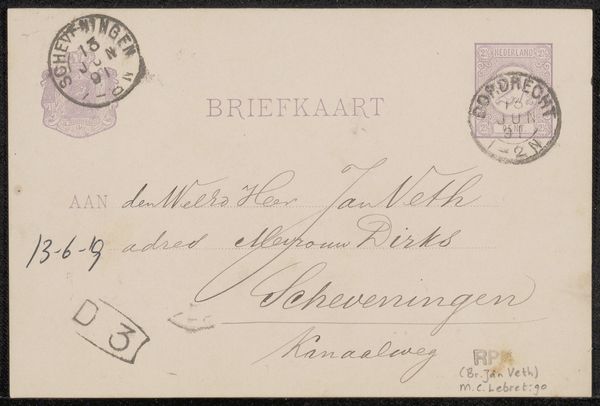 SCHEVENINGEN
13
JUN
91
NEDERLAND
2½ 2½
DORDRECHT
13
JUN
91
1-2N
BRIEFKAART
AAN den Heer Jan Veth
13-6-19
adres Mejrouw Dirks
Scheveningen
Kanaalweg
D 3
RPK
(Br. Jan Veth)
M.C. Lebret: 90